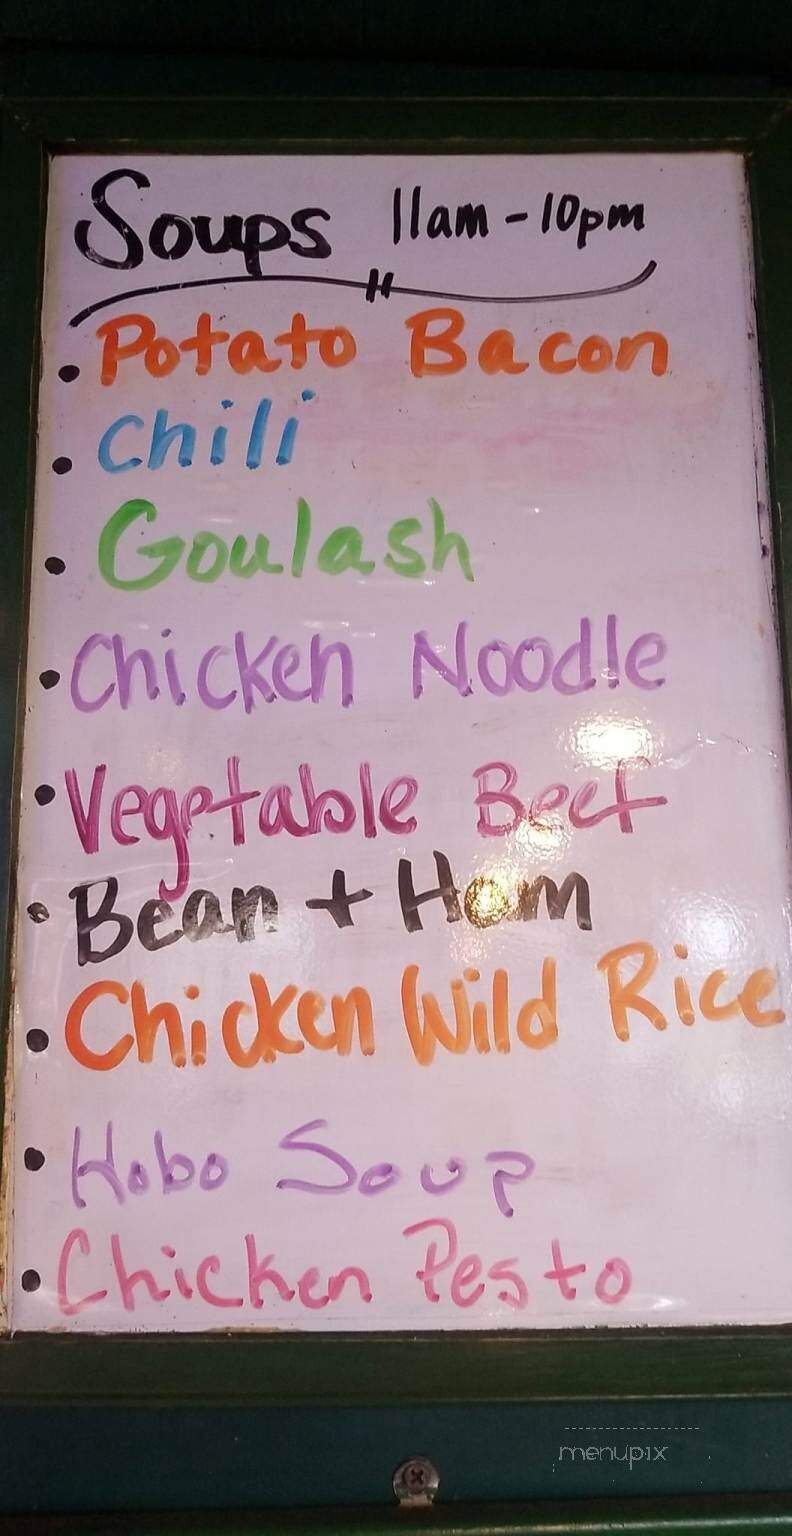 Soups 11am - 10pm
• Potato Bacon
• Chili
• Goulash
• Chicken Noodle
• Vegetable Beef
• Bean + Ham
• Chicken Wild Rice
• Hobo Soup
• Chicken Pesto
menupix